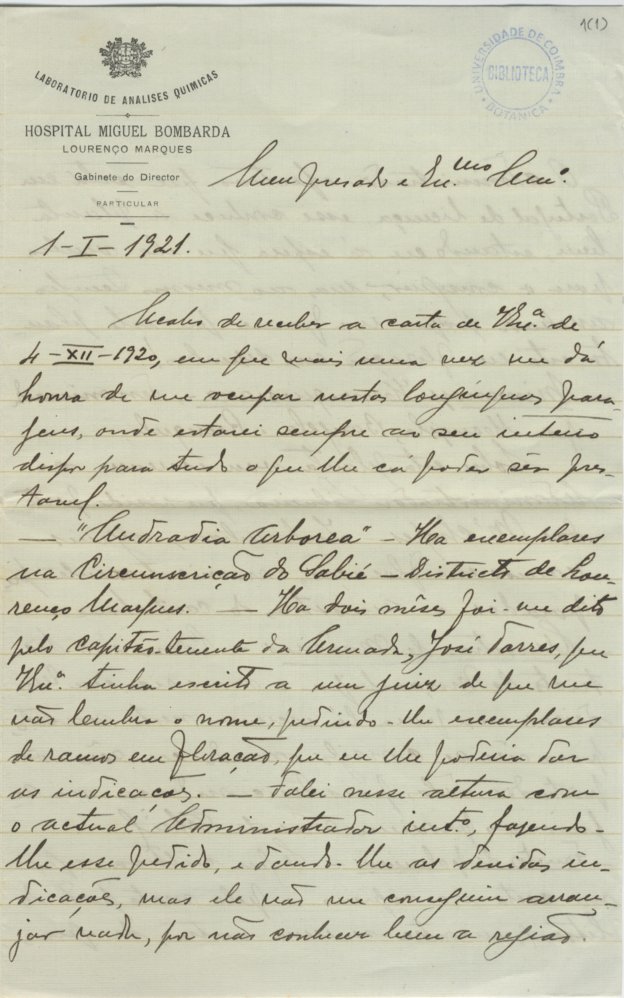 1(1)
UNIVERSIDADE DE COIMBRA
BIBLIOTECA
BOTANICA
LABORATORIO DE ANALISES QUIMICAS
HOSPITAL MIGUEL BOMBARDA
LOURENÇO MARQUES
Gabinete do Director
PARTICULAR
Meu presado e Ex.mo Am.o
1-I-1921.
Acabo de receber a carta de V.Ex.a de
4-XII-1920, em que mais uma vez me dá
honra de me ocupar nestas longinquas para-
gens, onde estarei sempre ao seu inteiro
dispor para tudo o que lhe cá poder sêr pres-
tavel.
— "Andradia arborea" - Ha exemplares
na Circunscrição do Sabié - Districto de Lou-
renço Marques. — Ha dois mêses foi-me dito
pelo capitão-tenente da Armada, José Torres, que
V.Ex.a tinha escrito a um juiz de que me
não lembra o nome, pedindo-lhe exemplares
de ramos em floração, que eu lhe poderia dar
as indicações. — Falei nessa altura com
o actual Administrador int.o, fazendo-
lhe esse pedido, e dando-lhe as devidas in-
dicações, mas ele não me conseguiu arran-
jar nada, por não conhecer bem a região.